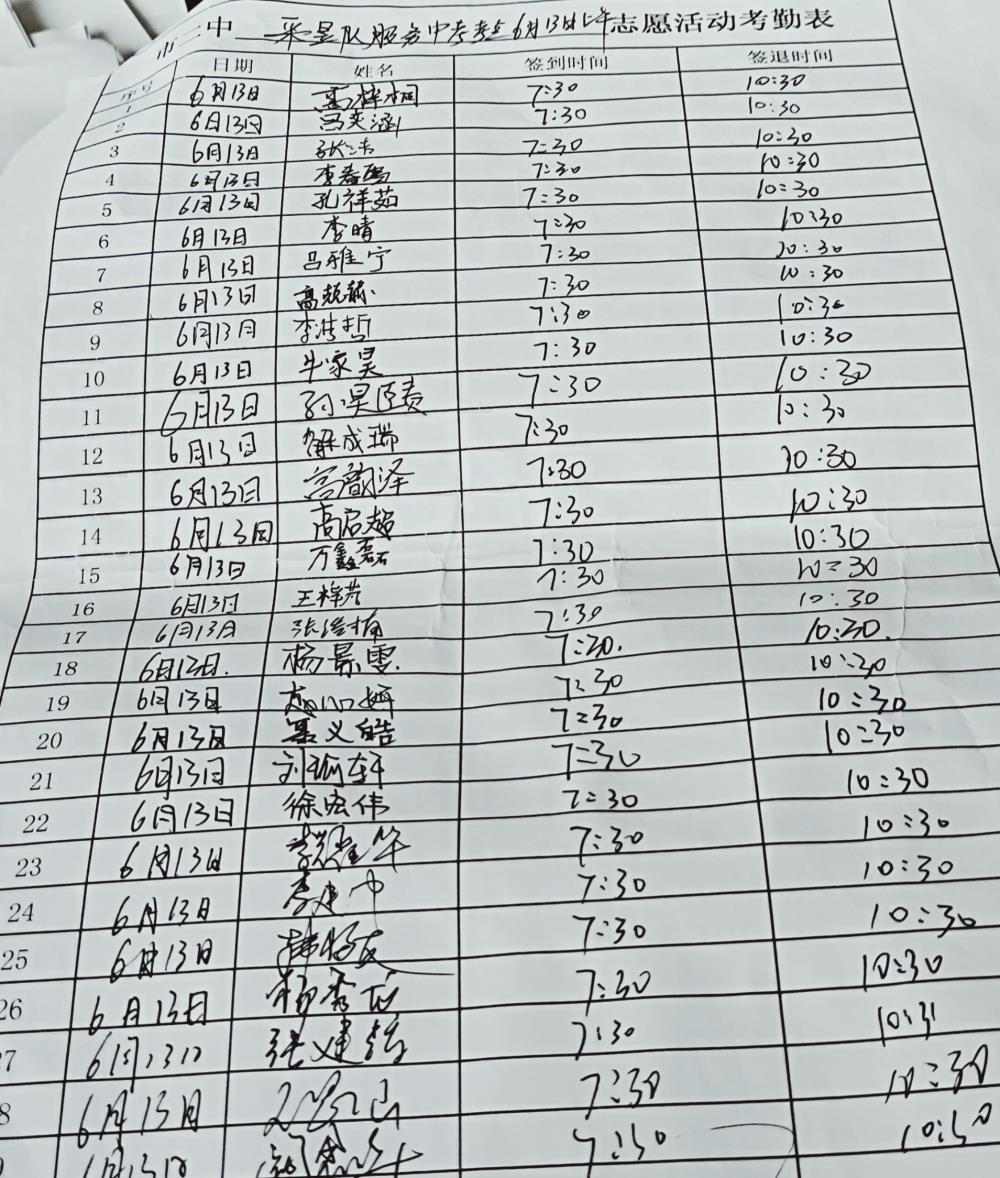 市二中 采昱队服务中考考点6月13日上午 志愿活动考勤表
序号 日期 姓名 签到时间 签退时间
1 6月13日 高梓桐 7:30 10:30
2 6月13日 吕奕涵 7:30 10:30
3 6月13日 7:30 10:30
4 6月13日 李春鸣 7:30 10:30
5 6月13日 孔祥茹 7:30 10:30
6 6月13日 李晴 7:30 10:30
7 6月13日 吕雅宁 7:30 10:30
8 6月13日 7:30 10:30
9 6月13日 李浩哲 7:30 10:30
10 6月13日 牛家昊 7:30 10:30
11 6月13日 7:30 10:30
12 6月13日 解成瑞 7:30 10:30
13 6月13日 7:30 10:30
14 6月13日 高启超 7:30 10:30
15 6月13日 万鑫磊 7:30 10:30
16 6月13日 王梓芳 7:30 10:30
17 6月13日 7:30 10:30
18 6月13日. 杨景雯. 7:30. 10:30.
19 6月13日 7:30 10:30
20 6月13日 义皓 7:30 10:30
21 6月13日 轩 7:30 10:30
22 6月13日 徐宏伟 7:30 10:30
23 6月13日 李 华 7:30 10:30
24 6月13日 李建中 7:30 10:30
25 6月13日 韩 7:30 10:30
26 6月13日 杨秀 7:30 10:30
7 6月13日 张建 7:30 10:31
8 6月13日 7:30 10:30
6月13日 7:30 10:30